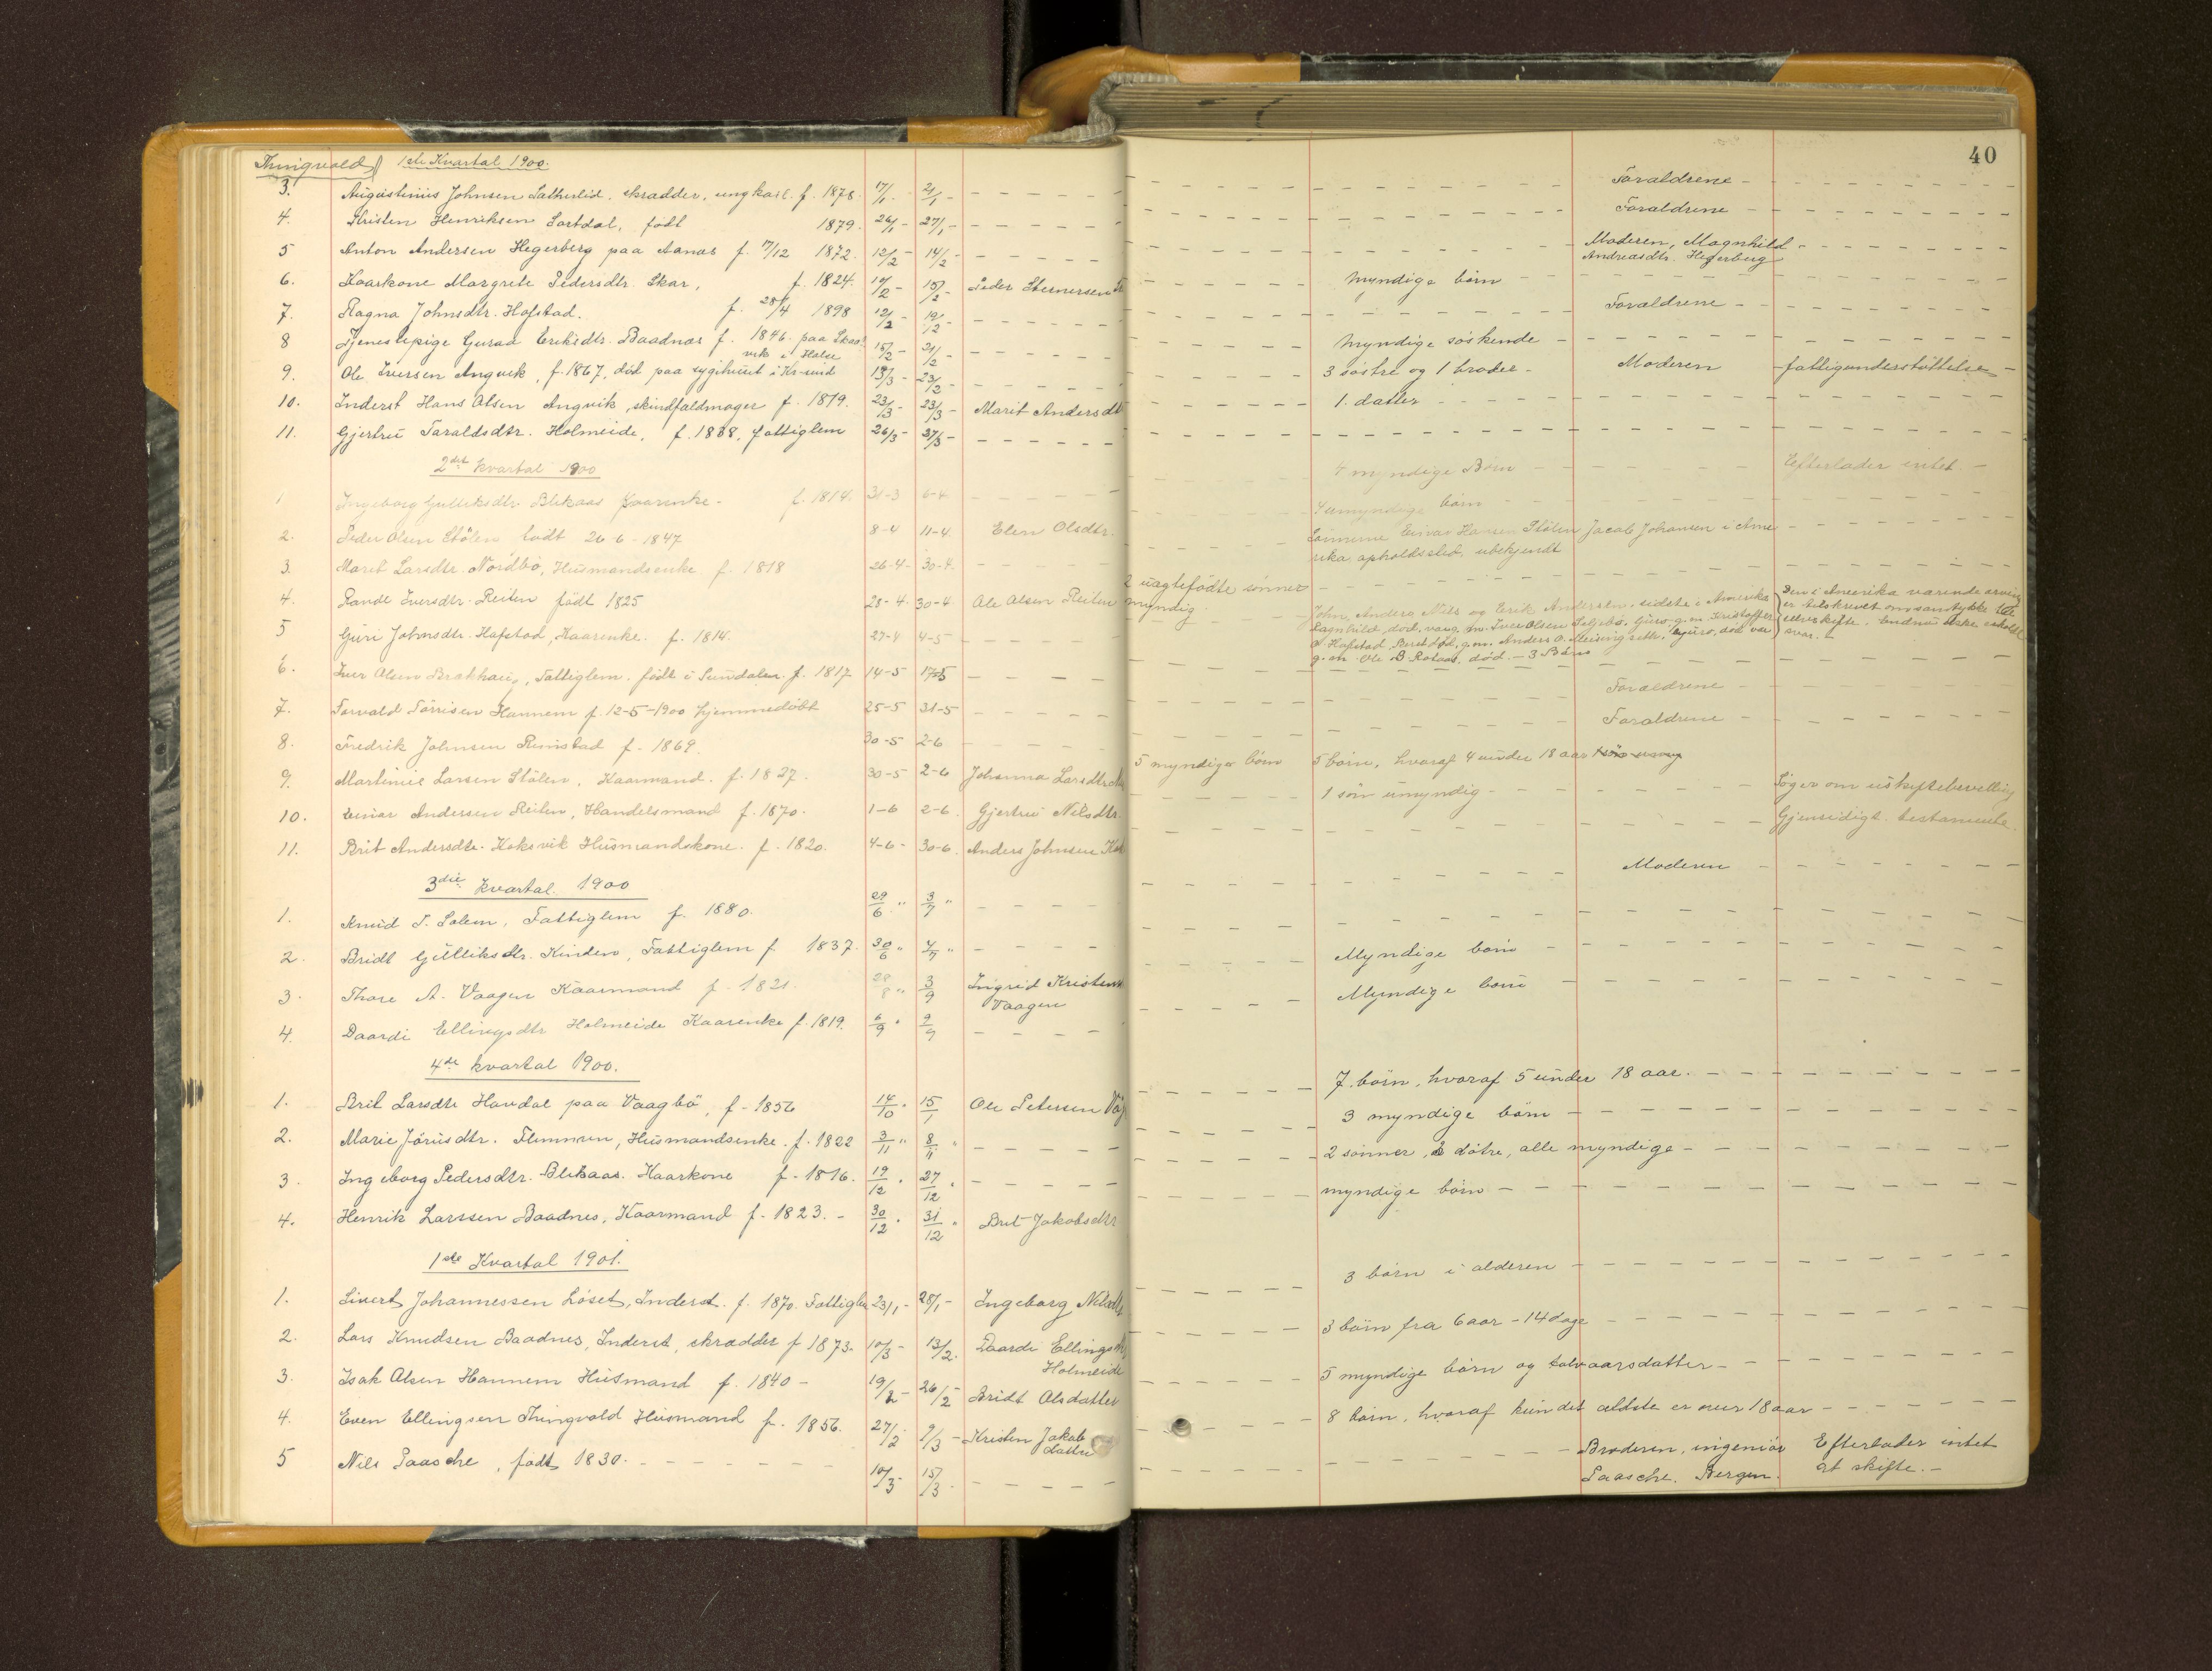 40
Thingvold 1ste Kvartal 1900.
3. Augustinius Johnsen Sætherlid, skrædder, ungkarl. f. 1878. 17/1 - 21/1 - Forældrene -
4. Kristen Henriksen Sortdal, født 1879. 26/1 - 27/1 - Forældrene -
5 Anton Andersen Hegerberg paa Aanæs f. 17/12 1872. 12/2 - 14/2 - Moderen, Magnhild
Andreasdtr. Hegerberg
6. Kaarkone Margrete Pedersdtr. Skar, f. 1824. 15/2 - Peder Stenersen Myndige børn
7. Ragna Johnsdtr. Hofstad. f. 28/4 1898 12/2 - 19/2 - Forældrene -
8 Tjenestepige Guraa Eriksdtr. Baadnæs f. 1846. paa Skaal
vik i Halse 15/2 - 21/2 - Myndige søskende -
9. Ole Iversen Angvik, f. 1867, død paa sygehuset i Kr-sund 13/3 - 23/3 - 3 søstre og 1 broder - Moderen fattigunderstøttelse -
10. Inderst Hans Olsen Angvik, skindfaldmager f. 1879. 23/3 - 23/3 - Marit Andersdt 1. datter
11. Gjertru Taraldsdtr. Holmeide, f. 1838, fattiglem 26/3 - 27/3 -
2det kvartal 1900
1 Ingeborg Gulliksdtr Blekaas Kaarenke - f. 1814. 31-3 6-4 4 myndige Børn Efterlader intet. -
2. Peder Olsen Stölen født 26-6-1847 8-4 11-4. Elen Olsdtr. 4 umyndige børn
3. Marit Larsdtr. Nordbö, Husmandsenke f. 1818 26-4- 30-4. Sønnerne Einar Hansen Stölen Jacob Johansen i Ame
rika, opholdssted ubekjendt
4. Randi Iversdtr. Reiten født 1825 28-4. 30-4. Ole Olsen Reiten 2 uægtefødte sønner
myndig.
5 Guri Johnsdtr. Hafstad, Kaarenke. f. 1814. 27-4 4-5 John, Anders, Nils og Erik Andersen, sidste i Amerika
Ragnhild, død, var g. m. Iver Olsen Guro, g. m. Kristoffer
O Hafstad, Berit død, g. m. Anders O. død var
g. m. Ole B Rotaas, død. - 3 Børn
Den i Amerika værende arving
er tilskrevet om samtykke til
selvskifte. Endnu ikke erholdt
svar. -
6. Iver Olsen Brækhaug, Fattiglem. født i Sundalen. f. 1817 14-5 17-5
7. Torvald Torrisen Hannem f. 12-5-1900 hjemmedöbt 25-5 31-5 Forældrene
8. Fredrik Johnsen Rimstad f. 1869. 30-5 2-6 Forældrene
9. Martinus Larsen Stölen, Kaarmand. f. 1827. 30-5 2-6 Johanna Larsdtr 5 myndige børn 5 børn, hvoraf 4 under 18 aar
10. Einar Andersen Reiten, Handelsmand f. 1870. 1-6 2-6. Gjertru Nilsdtr. 1 søn umyndig - Søger om uskiftebevilling
11. Brit Andersdtr. Koksvik Husmandskone. f. 1820. 4-6- 30-6. Anders Johnsen Kok Gjensidigt testamente.
3die kvartal 1900
1. Knud T. Solem, Fattiglem f. 1880. 29/6 " 3/7 " Moderen
2. Bridt Gulliksdtr. Kinden, Fattiglem f 1837. 30/6 " 4/7 "
3. Thore A. Vaagen Kaarmand f. 1821. 28/8 " 3/9 Ingrid Kristens
Vaagen Myndige børn
4. Daardi Ellingsdtr Holmeide Kaarenke f. 1819. 6/9 " 9/9 Myndige børn
4de kvartal 1900.
1. Brit Larsdtr Haudal paa Vaagbö, f. 1856 14/10 " 15/1 Ole Petersen Våg 7 børn, hvoraf 5 under 18 aar. -
2. Marie Jörusdtr. Flemmen, Husmandsenke. f. 1822 3/11 " 8/11 " 3 myndige børn
3. Ingeborg Pedersdtr. Blekaas. Kaarkone f. 1816. 19/12 " 27/12 " 2 sønner, 2 døtre, alle myndige -
4. Henrik Larssen Baadnes, Kaarmand f. 1823. - 30/12 " 31/12 " Brit Jakobsdtr myndige børn -
1ste Kvartal 1901.
1. Sivert Johannessen Löset, Inderst. f. 1870. Fattiglem 23/1 - 28/1 - Ingeborg Nilsdtr 3 børn i alderen
2. Lars Knudsen Baadnes, Inderst, skrædder f 1873. 10/3 - 13/2. Daardi Ellingsdt
Holmeide 3 børn fra 6 aar - 14 dage
3. Isak Olsen Hannem Husmand f. 1840 - 19/2 - 26/2 - Bridt Olsdatter 5 myndige børn og tolvaarsdatter -
4. Even Ellingsen Thingvold Husmand f. 1856. 27/2 - 9/3 - Kristen Jakob
datter 8 børn, hvoraf kun det ældste er over 18 aar -
5 Nils Paasche, født 1830. - 10/3 - 15/3 - Broderen, ingeniør
Paasche. Bergen. Efterlader intet
at skifte. -